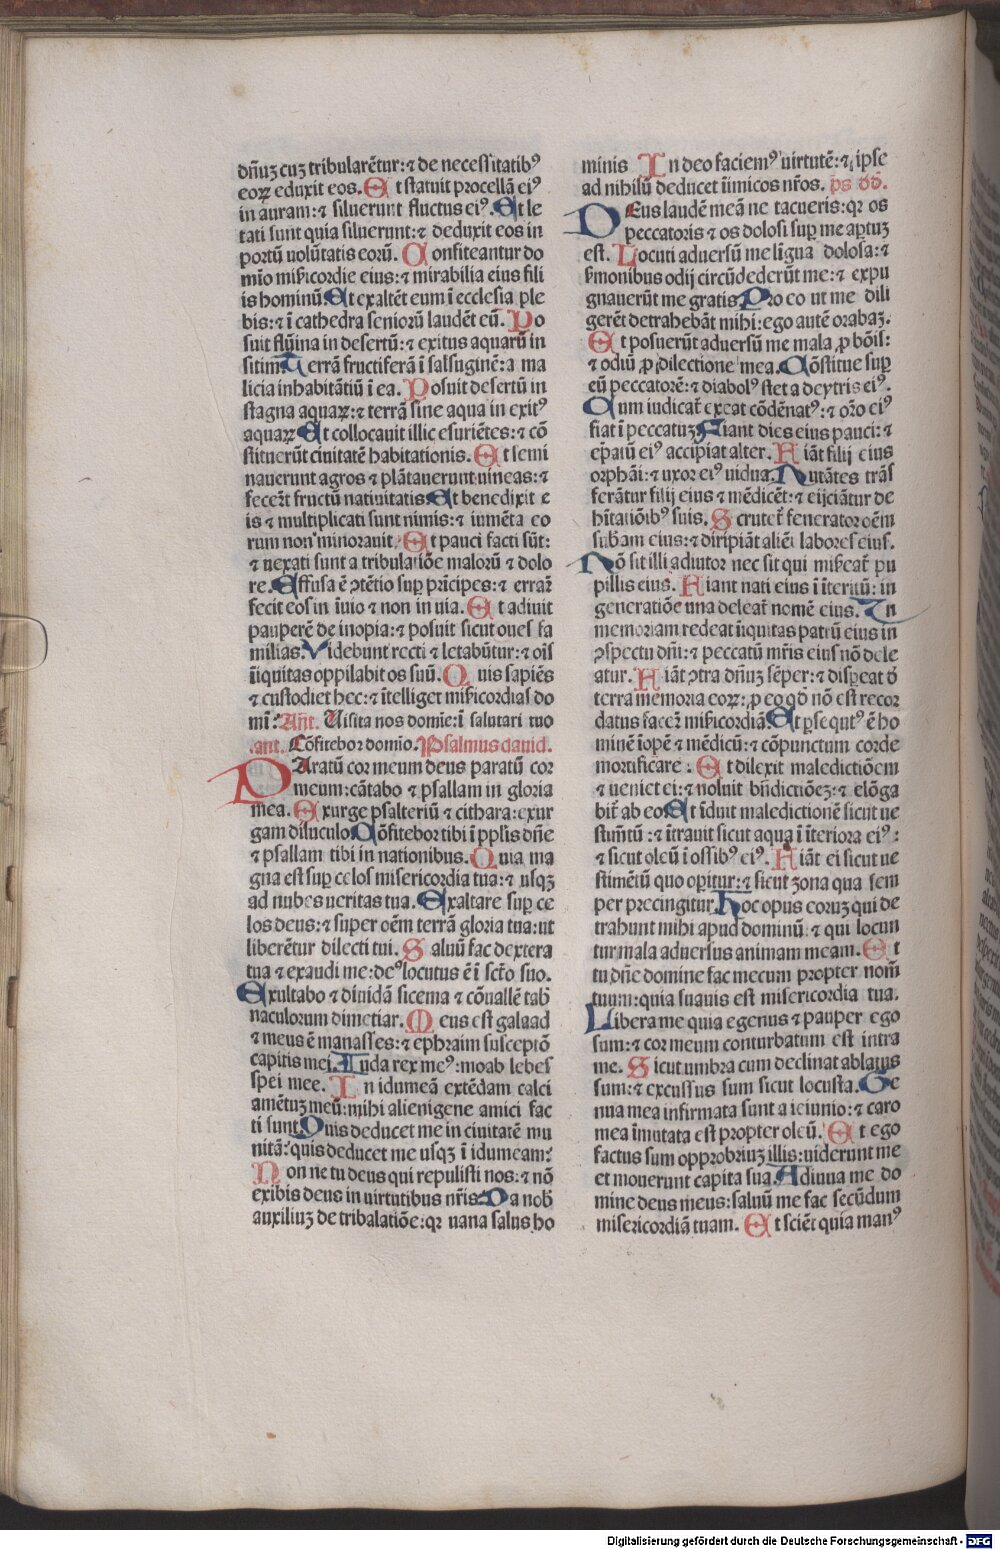 dñuꝫ cuꝫ tribularēt̃ur:⁊ de necessitatibꝰ
eoꝝ eduxit eos. Et statuit procellā eiꝰ
in auram:⁊ siluerunt fluctus eiꝰ. Et le
tati sunt quia siluerunt:⁊ deduxit eos in
portū uolūtatis eorū. Confiteantur do
mīo mīscordie eius:⁊ mirabilia eius fili
is hominū. Et exaltēt eum ī ecclesia ple
bis:⁊ ī cathedra seniorū laudēt eū. Po
suit flūina in desertū:⁊ exitus aquarū in
sitim. Terrā fructiferā ī salsuginē:a ma
licia inhabitātiū ī ea. Posuit desertū in
stagna aquaꝝ:⁊ terrā sine aqua in exitꝰ
aquaꝝ. Et collocauit illic esuriētes:⁊ cō
stituerūt ciuitatē habitationis. Et semi
nauerunt agros ⁊ plātauerunt uineas:⁊
fecer̄t fructū natiuitatis. Et benedixit e
is ⁊ multiplicati sunt nimis:⁊ iumēta eo
rum non minorauit. Et pauci facti sūt:
⁊ uexati sunt a tribulatiōe malorū ⁊ dolo
re. Effusa ē ꝯtētio suꝑ prīcipes:⁊ errar̄
fecit eos in īuio ⁊ non in uia. Et adiuit
pauperē de inopia:⁊ posuit sicut oues fa
milias. Videbunt recti ⁊ letabūtur:⁊ oīs
īiquitas oppilabit os suū. Quis sapiēs
⁊ custodiet hec:⁊ ītelliget mīscordias do
mī? Añt. Uisita nos domīe:ī salutari tuo
.ant. Cōfitebor domīo. Psalmus dauid.
PAratū cor meum deus paratū cor
meum:cātabo ⁊ psallam in gloria
mea. Exurge psalteriū ⁊ cithara:exur
gam diluculo. Cōfitebor tibi ī ppl̄is dñe
⁊ psallam tibi in nationibus. Quia ma
gna est suꝑ celos misericordia tua:⁊ usqꝫ
ad nubes ueritas tua. Exaltare suꝑ ce
los deus:⁊ super oēm terrā gloria tua:ut
liberētur dilecti tui. Saluū fac dextera
tua ⁊ exaudi me:deꝰ locutus ē ī sct̄o suo.
Exultabo ⁊ diuidā sicema ⁊ cōuallē tab̄
naculorum dimetiar. Meus est galaad
⁊ meus ē manasses:⁊ ephraim susceptō
capitis mei. Iuda rex meꝰ:moab lebes
spei mee. In idumeā extēdam calci
amētuꝫ meū:mihi alienigene amici fac
ti sunt. Quis deducet me in ciuitatē mu
nitā?quis deducet me usqꝫ ī idumeam?
Non ne tu deus qui repulisti nos:⁊ nō
exibis deus in uirtutibus nr̄is. Da nob̄
auxiliuꝫ de tribulatiōe:qꝛ uana salus ho
minis In deo faciemꝰ uirtutē:⁊ ipse
ad nihilū deducet īimicos nr̄os. ps dd̄.
DEus laudē meā ne tacueris:qꝛ os
peccatoris ⁊ os dolosi suꝑ me aꝑtuꝫ
est. Locuti aduersū me līgua dolosa:⁊
s̄monibus odij circūdederūt me:⁊ expu
gnauerūt me gratis. Pro eo ut me dili
gerēt detrahebāt mihi:ego autē orabaꝫ.
Et posuerūt aduersū me mala ꝓ bōis:
⁊ odiū ꝓ dilectione mea. Cōstitue suꝑ
eū peccatorē:⁊ diabolꝰ stet a dextris eiꝰ.
Cum iudicat̄ exeat cōdēnatꝰ:⁊ or̄o eiꝰ
fiat ī peccatuꝫ. Fiant dies eius pauci:⁊
ep̄atū eiꝰ accipiat alter. Fiāt filij eius
orphāi:⁊ uxor eiꝰ uidua. Nutātes trās
ferātur filij eius ⁊ mēdicēt:⁊ eijciātur de
h̄itatiōibꝰ suis. Scrutet̄ fenerator oēm
sub̄am eius:⁊ diripiāt aliēi labores eius.
Nō sit illi adiutor nec sit qui mīscat̄ pu
pillis eius. Fiant nati eius ī īteritū:in
generatiōe una deleat̄ nomē eius. In
memoriam redeat īiquitas patrū eius in
ꝯspectu dñi:⁊ peccatū mr̄is eius nō dele
atur. Fiāt ꝯtra dñuꝫ sēper:⁊ disꝑeat d̄
terra memoria eoꝝ:ꝓ eo qd̄ nō est recor
datus facer̄ mīscordiā. Et ꝑsequtꝰ ē ho
minē īopē ⁊ mēdicū:⁊ cōpunctum corde
mortificare. Et dilexit maledictiōem
⁊ ueniet ei:⁊ noluit bn̄dictiōeꝫ:⁊ elōga
bit̄ ab eo. Et īduit maledictionē sicut ue
stum̄tū:⁊ ītrauit sicut aqua ī īteriora eiꝰ:
⁊ sicut oleū ī ossibꝰ eiꝰ. Fiāt ei sicut ue
stimētū quo oꝑitur:⁊ sicut zona qua sem
per precingitur. Hoc opus eoruꝫ qui de
trahunt mihi apud dominū:⁊ qui locun
tur mala aduersus animam meam. Et
tu dñe domine fac mecum propter nom̄
tuum:quia suauis est misericordia tua.
Libera me quia egenus ⁊ pauper ego
sum:⁊ cor meum conturbatum est intra
me. Sicut umbra cum declinat ablatus
sum:⁊ excussus sum sicut locusta. Ge
nua mea infirmata sunt a ieiunio:⁊ caro
mea īmutata est propter oleū. Et ego
factus sum opprobriuꝫ illis:uiderunt me
et mouerunt capita sua. Adiuua me do
mine deus meus:saluū me fac secūdum
misericordiā tuam. Et sciēt quia manꝰ
Digitalisierung gefördert durch die Deutsche Forschungsgemeinschaft - DFG